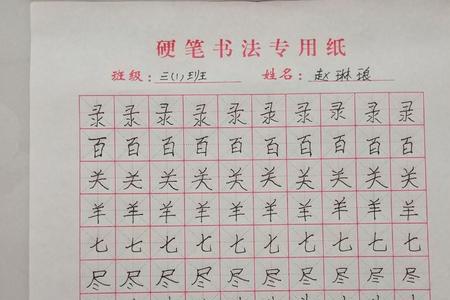 硬笔书法专用纸
班级：三(1)班 姓名：赵琳琅
录录录录录录录录录录
百百百百百百百百百百
关关关关关关关关关关
羊羊羊羊羊羊羊羊羊羊
七七七七七七七七七七
尽尽尽尽尽尽尽尽尽尽